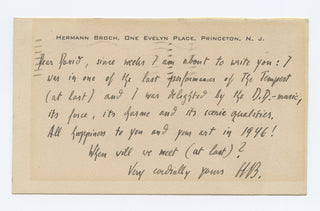 HERMANN BROCH, ONE EVELYN PLACE, PRINCETON, N. J.
Dear David, since weeks I am about to write you: I
was in one of the last performances of the Tempest
(at last) and I was delighted by the D.D.-music,
its force, its charme and its scenic qualities.
All happiness to you and your art in 1946!
When will we meet (at last)?
Very cordially yours HB.